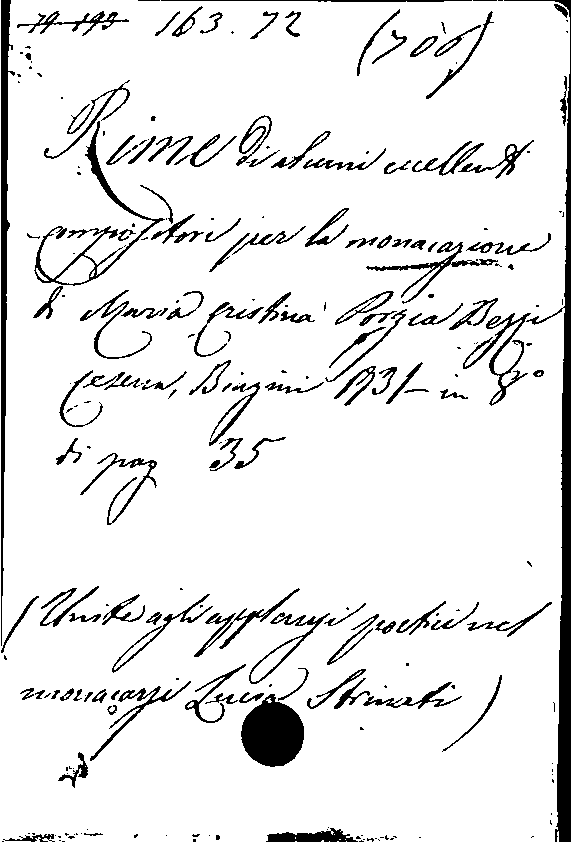 79-193 163.72 (700)
Rime di alcuni eccellenti
compositori per la monacazione
di Maria Cristina Porzia Bezzi
Cesena, Biagini 1731 - in 8°
di pag 35
(Unite agli applausi poetici nel
monacarsi Lucia Strinati)